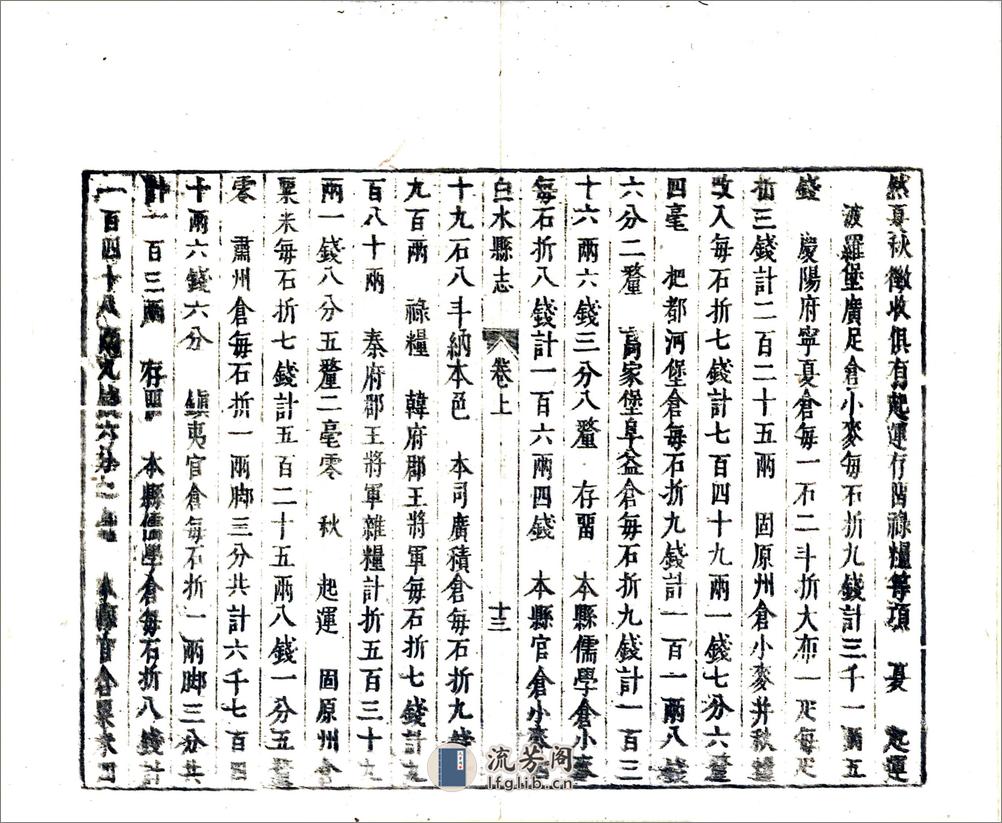 然夏秋徵收俱有起運存留祿糧等項　夏　起運
波羅堡廣足倉小麥每石折九錢計三千一兩五
錢　慶陽府寧夏倉每一石二斗折大布一疋每疋
折三錢計二百二十五兩　固原州倉小麥并秋糧
改入每石折七錢計七百四十九兩一錢七分六釐
四毫　把都河堡倉每石折九錢計一百一兩八錢
六分二釐　高家堡阜益倉每石折九錢計一百三
十六兩六錢三分八釐　存留　本縣儒學倉小麥
每石折八錢計一百六兩四錢　本縣官倉小麥
白水縣志　卷上　十三
十九石八斗納本色　本司廣積倉每石折九錢
九百兩　祿糧　韓府郡王將軍每石折七錢計九
百八十兩　秦府郡王將軍雜糧計折五百三十九
兩一錢八分五釐二毫零　秋　起運　固原州倉
粟米每石折七錢計五百二十五兩八錢一分五釐
零　肅州倉每石折一兩脚三分共計六千七百四
十兩六錢六分　鎮夷官倉每石折一兩脚三分共
計一百三兩　存留　本縣儒學倉每石折八錢計
一百四十八兩九錢六分　本縣官倉粟米四
流芳阁
lfglib.cn